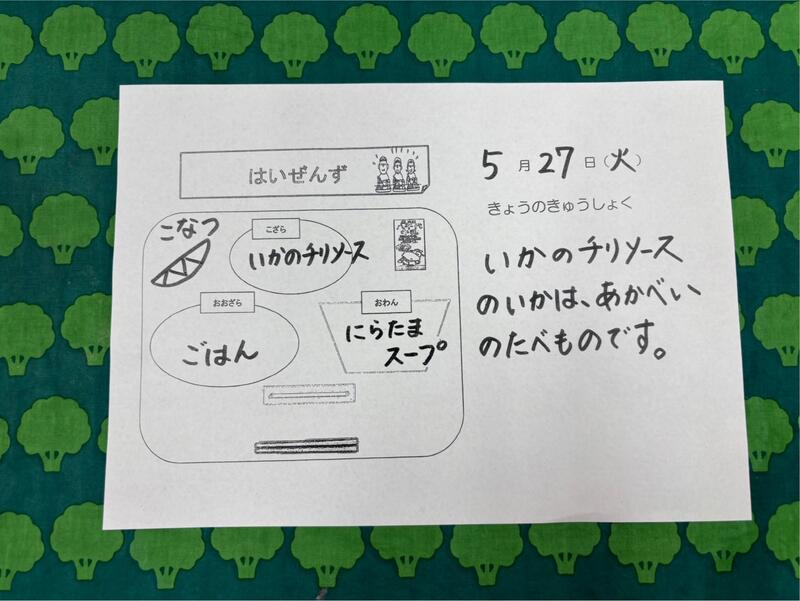 はいぜんず
こなつ
こざら
いかのチリソース
おおざら
ごはん
おわん
にらたま
スープ
5月27日(火)
きょうのきゅうしょく
いかのチリソース
のいかは、あかべい
のたべものです。